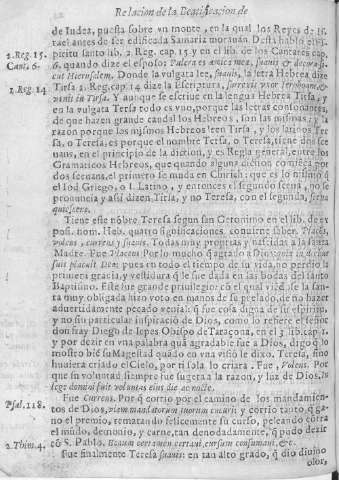 Relacion de la Beatificacion de
de Iudea, puesta sobre vn monte, en la qual los Reyes de Is-
rael antes de ser edificada Samaria morauan. Desta hablo el Es-
2. Reg. 15. piritu santo lib. 2. Reg. cap. 15. y en el lib. de los Cantares cap.
Cant. 6. 6. quando dize el esposo: Pulcra es amica mea, suauis & decora si-
cut Hierusalem. Donde la vulgata lee, suauis, la letra Hebrea dize
3. Reg. 14 Tirsa 3. Reg. cap. 14 dize la Escriptura, surrexit vxor Ieroboam &
venit in Tirsa. Y aunque se escriue en la lengua Hebrea Tirsa, y
en la vulgata Tersa todo es vno, porque las letras consonantes,
de que hazen grande caudal los Hebreos, son las mismas: y la
razon porque los mismos Hebreos leen Tirsa, y los latinos Ter-
sa, o Teresa, es porque el nombre Tersa, o Teresa, tiene dos se
uuas, en el principio de la dicion, y es Regla general, entre los
Gramaticos Hebreos, que quando alguna dicion comiẽça por
dos sceuaas, el primero se muda en Chirich: que es lo mismo q̃
el Iod Griego, o I. Latino, y entonces el segundo sceua, no se
pronuncia y assi dizen Tirsa, y no Teresa, con el segunda, sceua
quiescere.
Tiene este nõbre Teresa segun san Geronimo en el lib. de ex
posi. nom. Heb. quatro significaciones conuiene saber. Placẽs,
volens, currens y suauis. Todas muy proprias y nascidas a la santa
Madre. Fue Placens Por lo mucho q̃ agrado a Dios
fuit placuit Deo, pues en todo el tiempo de su vida, no perdio la
primera gracia, y vestidura q̃ le fue dada en las bodas del santo
Baptismo. Este fue grande priuilegio: cõ el qual vida de la san-
ta muy obligada hizo voto en manos de su prelado, de no hazer
aduertidamente pecado venial: q̃ fue cosa digna de su espiritu,
y no sin particular inspiracio de Dios, como lo refiere el señor
don fray Diego de Iepes Obispo de Taraçona, en el 3. lib. cap. 1.
y por dezir en vna palabra quã agradable fue a Dios, digo q̃ lo
mostro biẽ su Magestad quãdo en vna visiõ le dixo. Teresa, sino
huuiera criado el Cielo, por ti sola lo criara. Fue, Volens. Por
que su voluntad siempre fue sugeta a la razon, y luz de Dios. In
lege domini fuit voluntas eius die ac nocte.
Fue Currens. Por q̃ corrio por el camino de los mandamien-
Psal. 118. tos de Dios, viam mandatorum tuorum cucurri y corrio tanto q̃ ga-
no el premio, rematando felicemente su curso, peleando cõtra
el mũdo, demonio, y carne, tan denodadamente, q̃ pudo dezir
2. Thim. 4. cõ S. Pablo. Bonum certamen certaui, cursum consumaui, &c.
Fue finalmente Teresa suauis: en tan alto grado, q̃ dio diuino
olor,